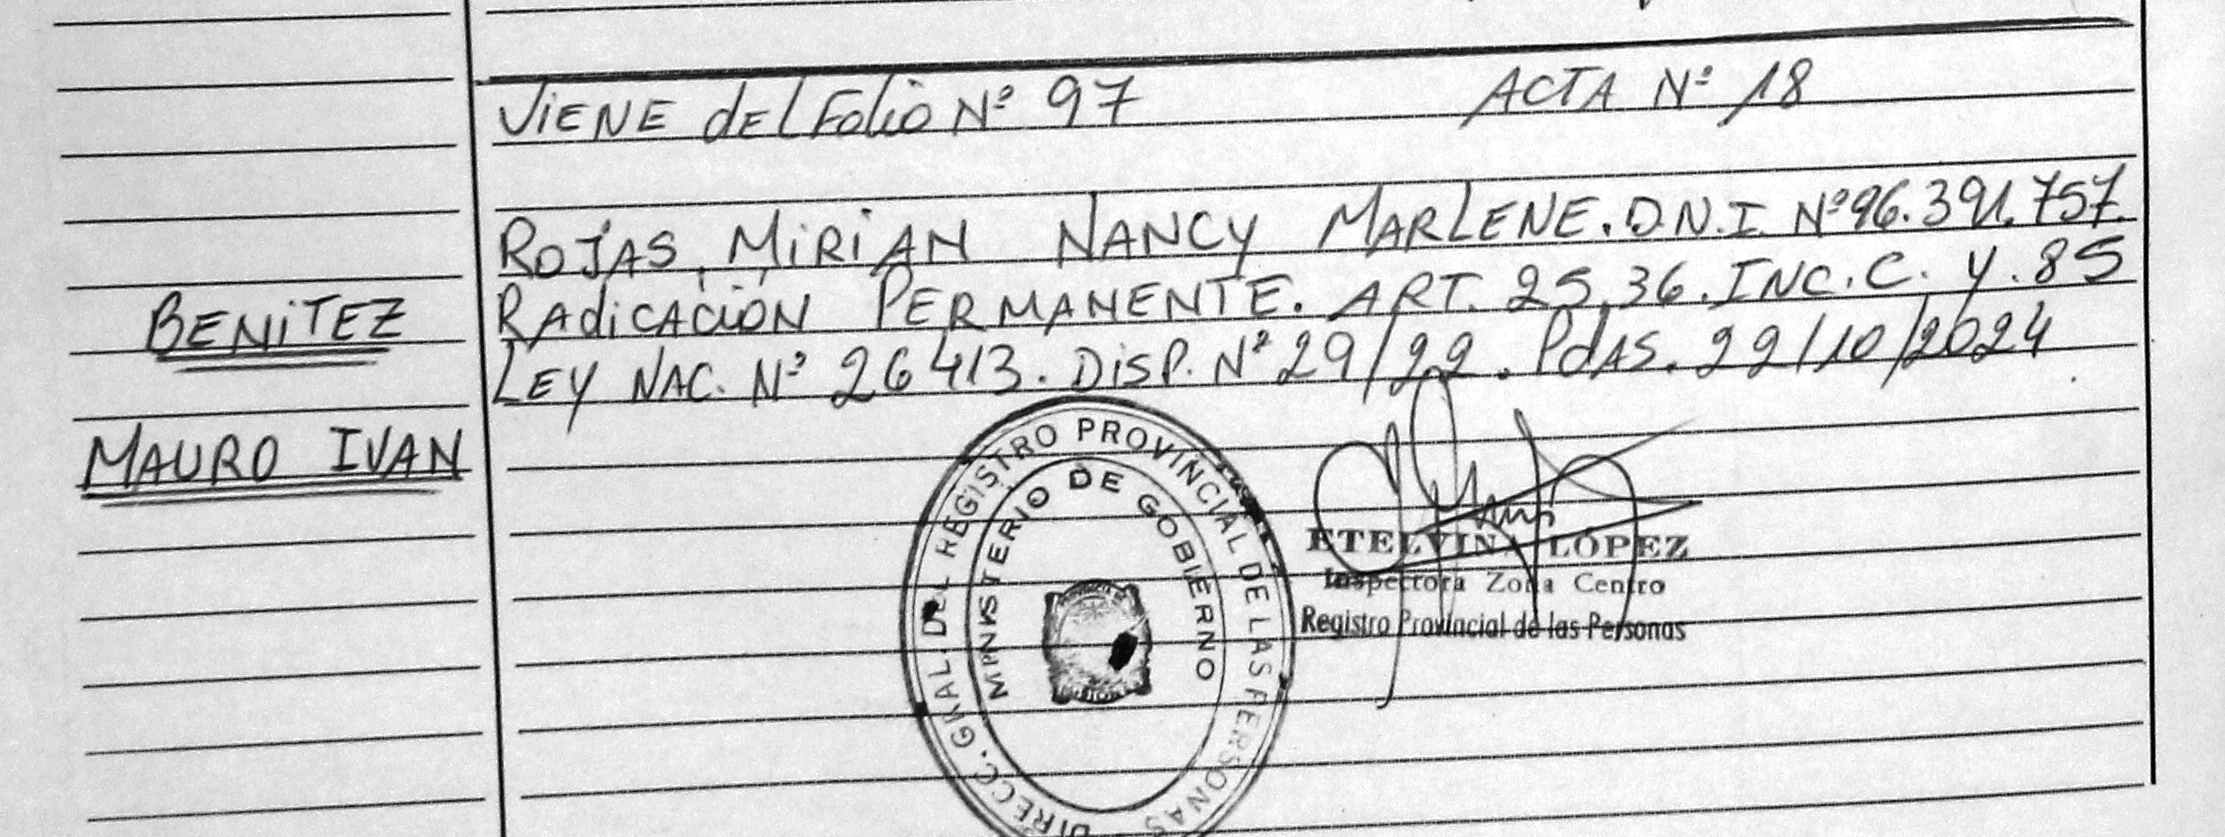 VIENE del Folio Nº 97 ACTA Nº 18
ROJAS, MIRIAN NANCY MARLENE. D.N.I. Nº 96.391.757.
RADICACIÓN PERMANENTE. ART. 25, 36. INC. C. Y. 85
LEY NAC. Nº 26413. DISP. Nº 29/22. PdAS. 22/10/2024
BENITEZ
MAURO IVAN
DIRECC. GRAL. DEL REGISTRO PROVINCIAL DE LAS PERSONAS
MINISTERIO DE GOBIERNO
ETELVINA LÓPEZ
Inspectora Zona Centro
Registro Provincial de las Personas